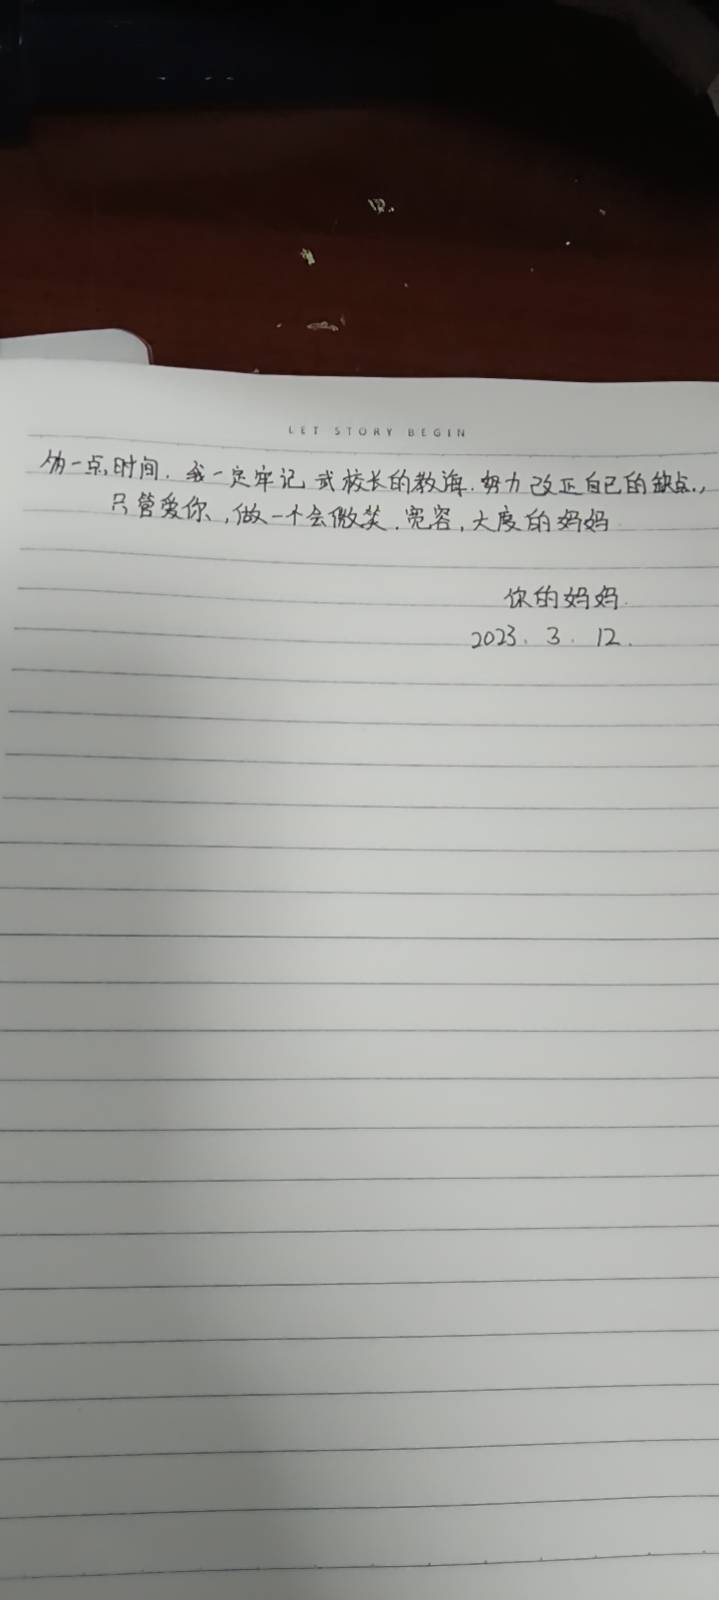 LET STORY BEGIN
一点时间．我一定牢记武校长的教海．努力改正自己的缺点．，
只管爱你，做一个会微笑．宽容，大度的妈妈
你的妈妈．
2023．3．12．